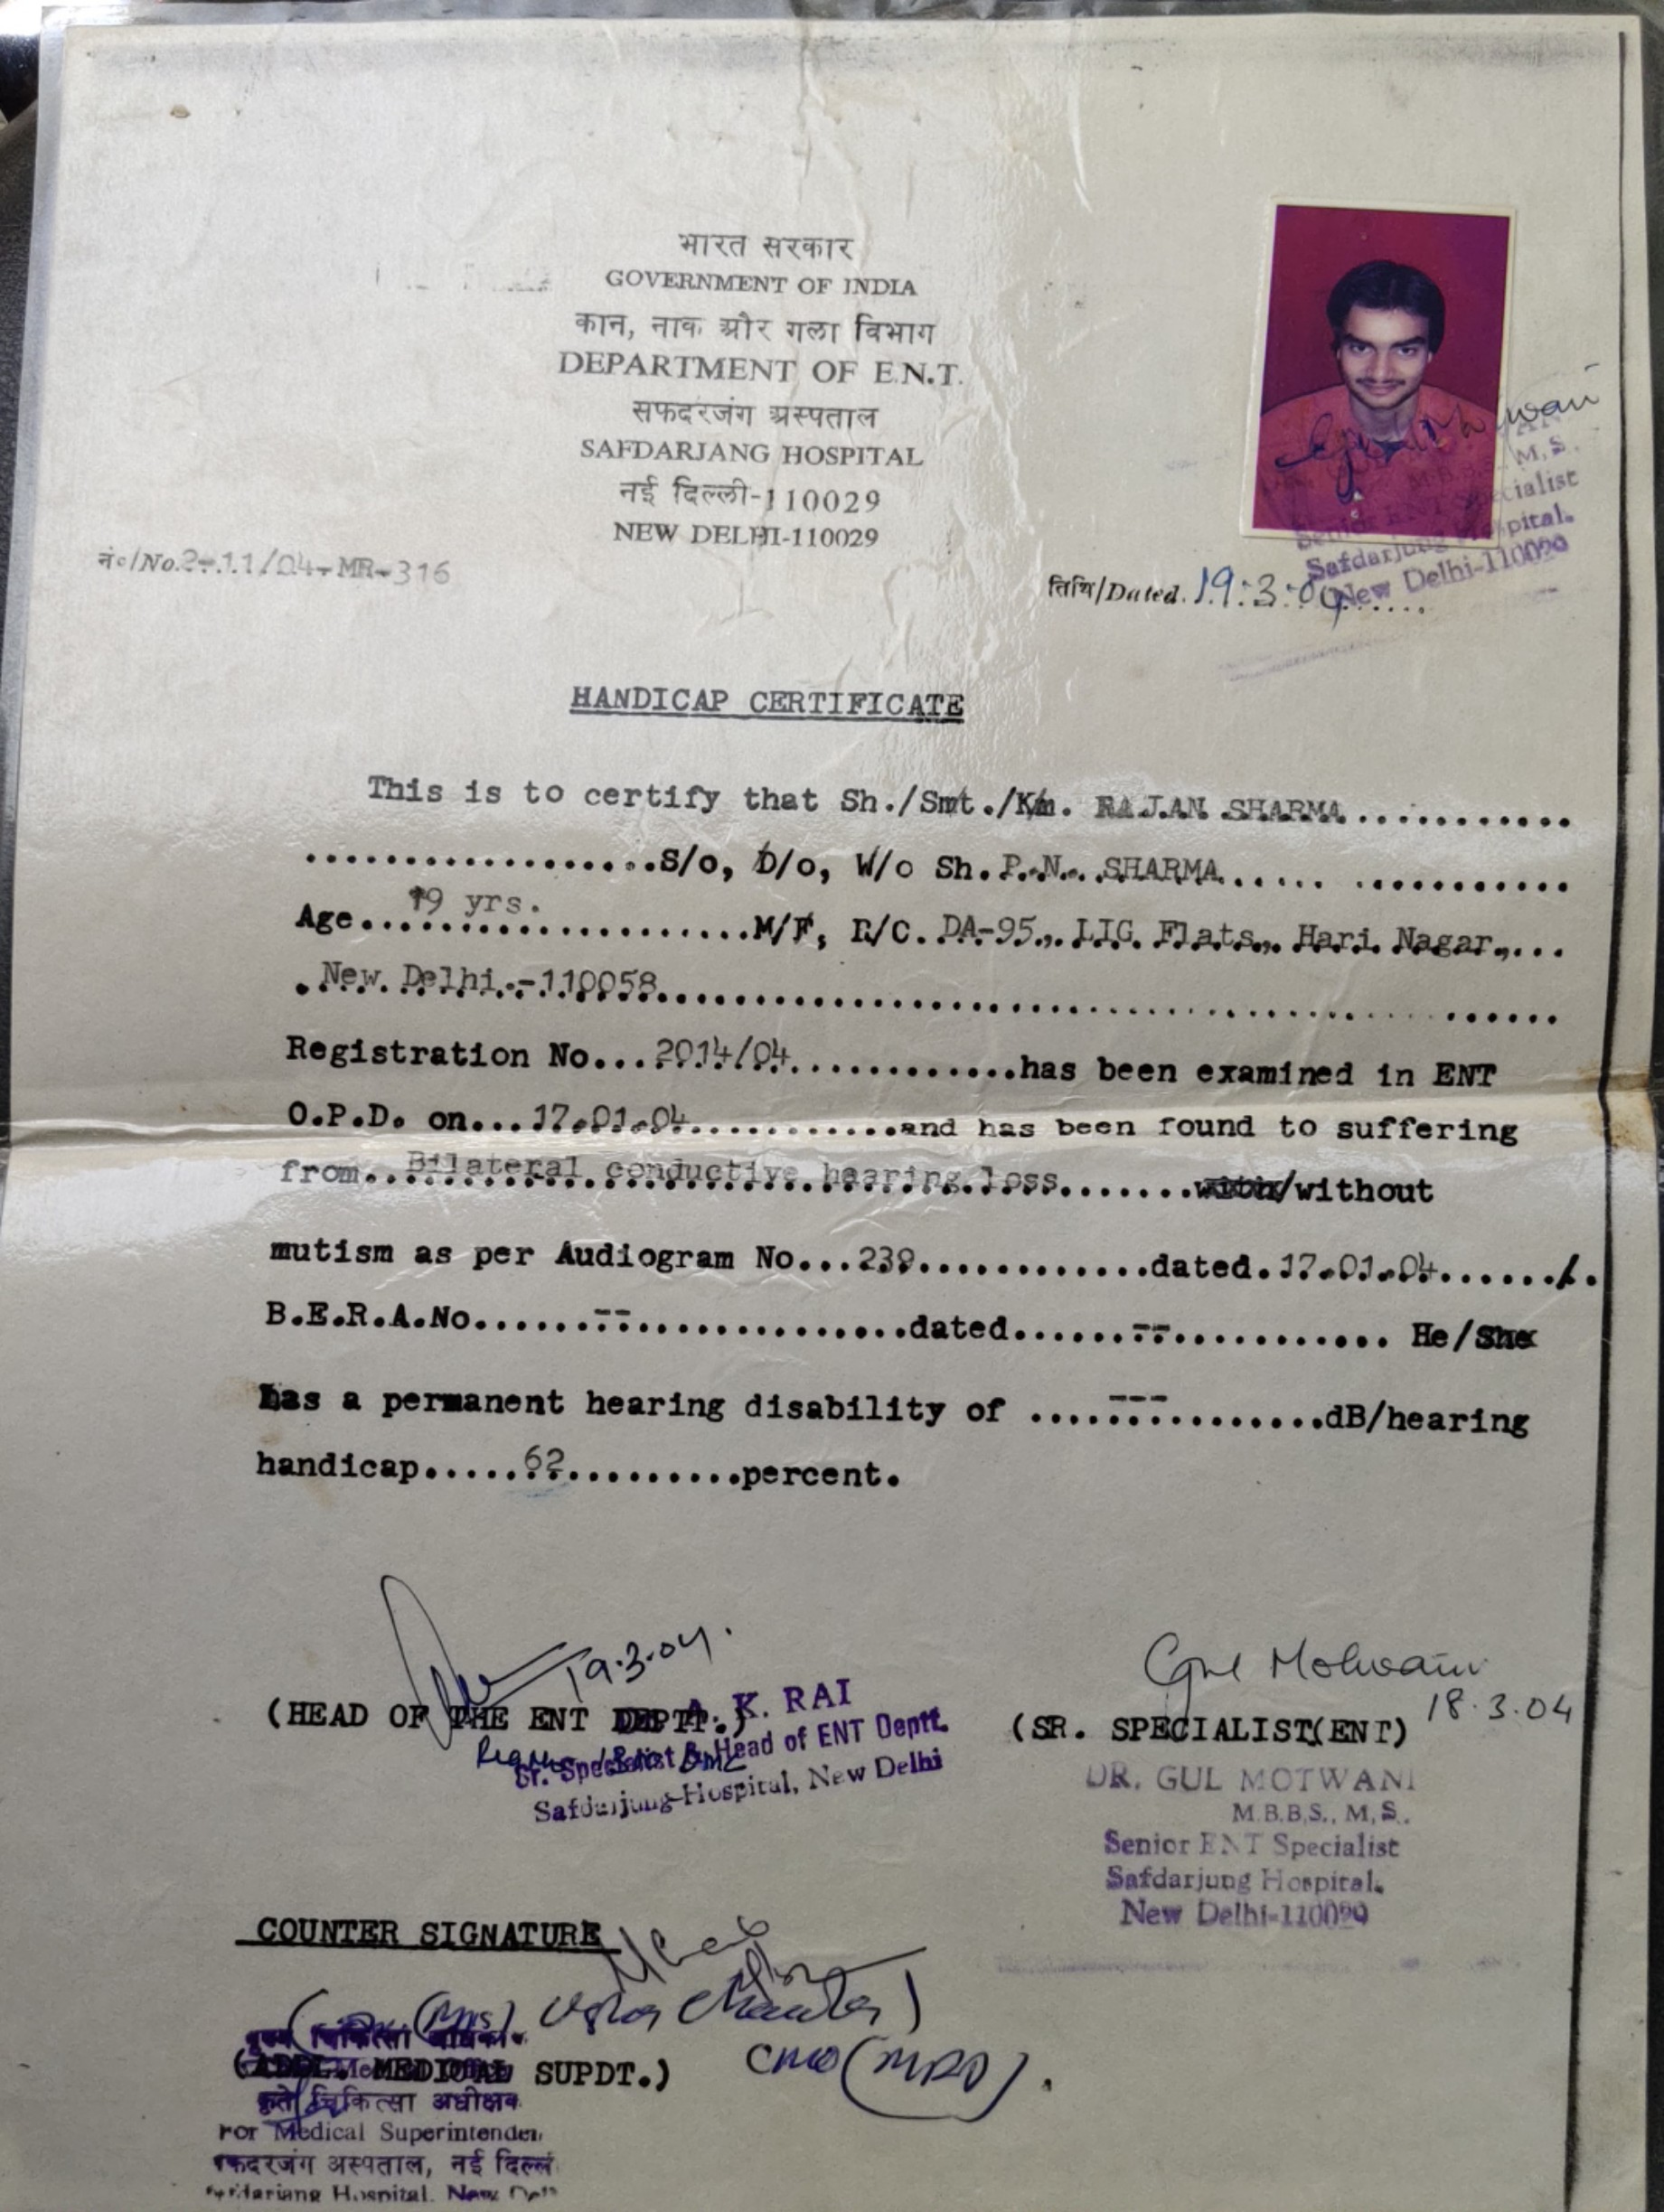 भारत सरकार
GOVERNMENT OF INDIA
कान, नाक और गला विभाग
DEPARTMENT OF E.N.T.
सफदरजंग अस्पताल
SAFDARJANG HOSPITAL
नई दिल्ली-110029
NEW DELHI-110029
Gul Motwani
M.S.
Senior ENT Specialist
Safdarjung Hospital.
New Delhi-110029
नं०/No.2-11/04-MR-316
तिथि/Dated.19.3.04......
HANDICAP CERTIFICATE
This is to certify that Sh./Smt./Km. RAJAN SHARMA............
..................S/o, D/o, W/o Sh.P.N. SHARMA...... ...........
Age....19 yrs.................M/F, R/O. DA-95, LIG Flats, Hari Nagar,...
.New Delhi.-110058..............................................
Registration No...2014/04.............has been examined in ENT
O.P.D. on...17.01.04...........and has been found to suffering
from..Bilateral conductive hearing loss.......with/without
mutism as per Audiogram No...239............dated.17.01.04......./.
B.E.R.A.No......--...............dated......--........... He/She
has a permanent hearing disability of ....---..........dB/hearing
handicap.....62.........percent.
19.3.04.
(HEAD OF THE ENT DEPTT.)
A. K. RAI
Sr. Specialist & Head of ENT Deptt.
Safdarjung Hospital, New Delhi
Gul Motwani
18.3.04
(SR. SPECIALIST(ENT)
DR. GUL MOTWANI
M.B.B.S., M.S.
Senior ENT Specialist
Safdarjung Hospital.
New Delhi-110029
COUNTER SIGNATURE
(Mrs) Usha
CMO (MRD).
(ADDL. MEDICAL SUPDT.)
कृते चिकित्सा अधीक्षक
For Medical Superintenden
सफदरजंग अस्पताल, नई दिल्ल
Hospital, New Delh